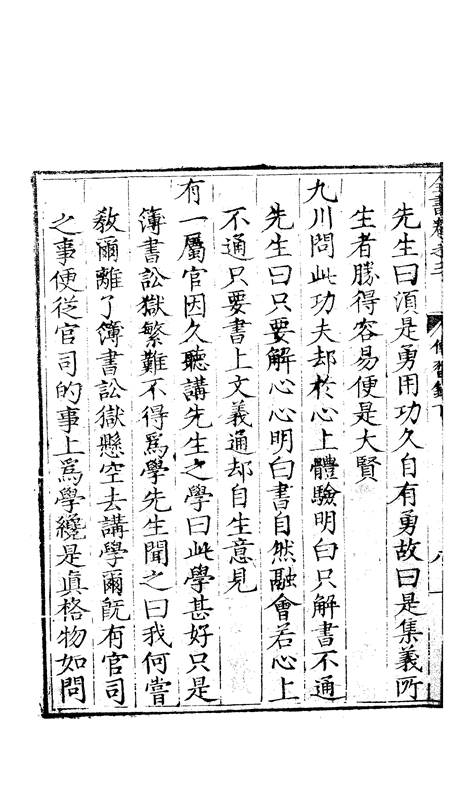 全書卷之三 傳習錄下 八
先生曰須是勇用功久自有勇故曰是集義所
生者勝得容易便是大賢
九川問此功夫却於心上體驗明白只解書不通
先生曰只要解心心明白書自然融會若心上
不通只要書上文義通却自生意見
有一屬官因久聽講先生之學曰此學甚好只是
簿書訟獄繁難不得爲學先生聞之曰我何嘗
敎爾離了簿書訟獄懸空去講學爾旣有官司
之事便從官司的事上爲學纔是眞格物如問